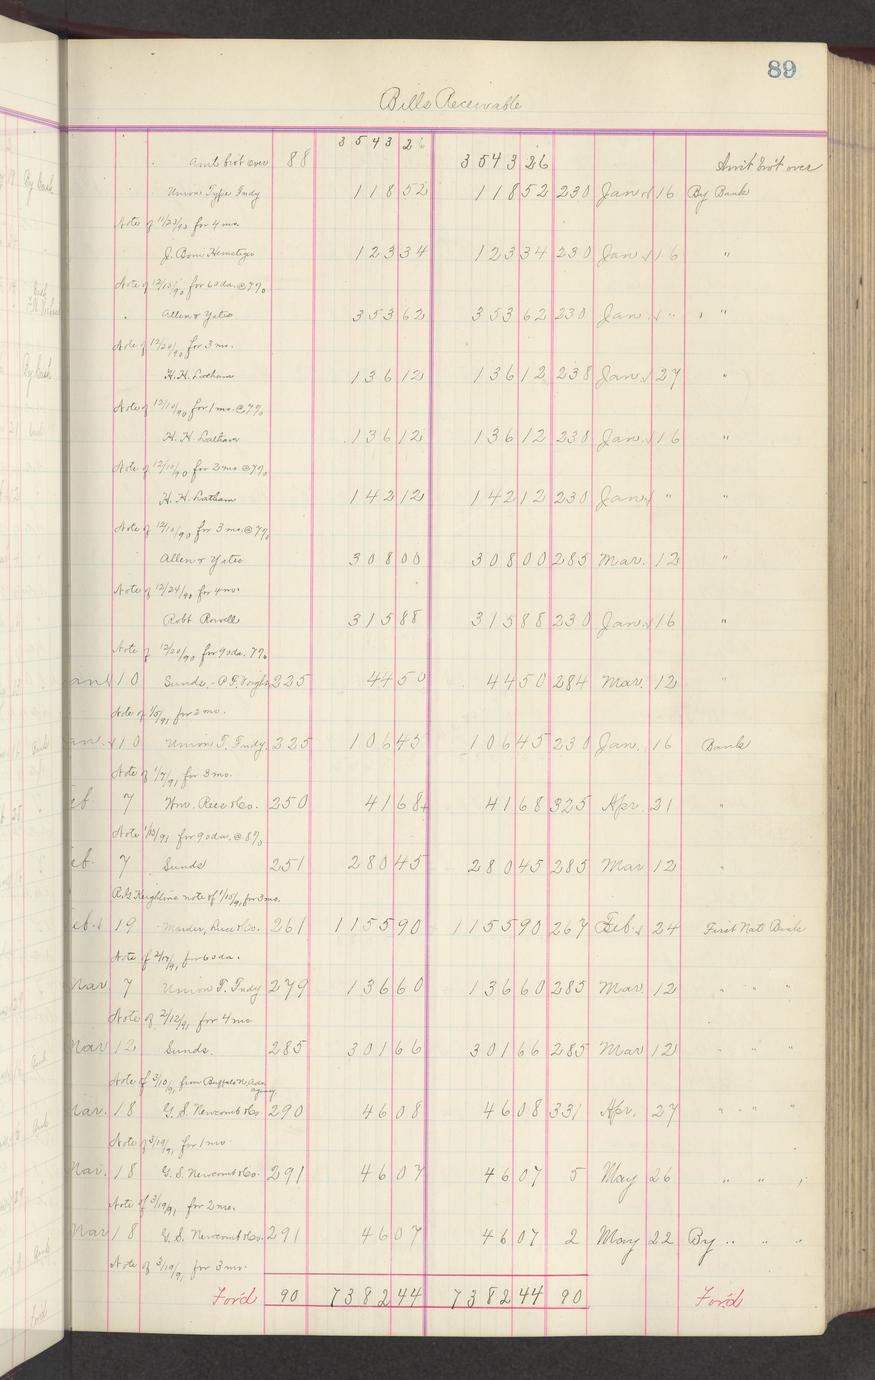 89
Bills Receivable
Amt brot over 88 3543 26 3543 26 Amt brot over
Union Type Indy 118 52 118 52 230 Jan 16 By Bank
Note of 11/23/90 for 4 mo.
J. 123 34 123 34 230 Jan 16 "
Note of 12/10/90 for 60 da. @ 7%
Allen & Yates 353 62 353 62 230 Jan. " "
Note of 12/20/90 for 3 mo.
H. H. Latham 136 12 136 12 238 Jan. 27 "
Note of 12/10/90 for 1 mo. @ 7%
H. H. Latham 136 12 136 12 230 Jan. 16 "
Note of 12/10/90 for 2 mo @ 7%
H. H. Latham 142 12 142 12 230 Jan " "
Note of 12/10/90 for 3 mo. @ 7%
Allen & Yates 308 00 308 00 285 Mar. 12 "
Note of 12/24/90 for 4 mo.
Robt Rowell 315 88 315 88 230 Jan. 16 "
Note of 12/20/90 for 90 da. 7%
Jan 10 Sunds. 225 44 50 44 50 284 Mar. 12 "
Note of 1/5/91 for 2 mo.
an. 10 Union T. Indy. 225 106 45 106 45 230 Jan. 16 Bank
Note of 1/7/91 for 3 mo.
eb. 7 Wm. Rees & Co. 250 41 68 41 68 325 Apr. 21 "
Note 1/10/91 for 90 da. @ 8%
eb. 7 Sunds 251 280 45 280 45 285 Mar 12 "
note of 1/15/91 for 3 mo.
eb. 19 Marder, Luse & Co. 261 1155 90 1155 90 267 Feb. 24 First Nat Bank
Note of 2/17/91 for 60 da.
Mar 7 Union T. Indy 279 136 60 136 60 285 Mar. 12 " " "
Note of 2/12/91 for 4 mo
Mar 12 Sunds. 285 301 66 301 66 285 Mar 12 " " "
Note of 3/10/91 from Buffalo N. Adv. agency
Mar. 18 G. S. Newcomb & Co. 290 46 08 46 08 331 Apr. 27 " " "
Note of 3/19/91 for 1 mo.
Mar. 18 G. S. Newcomb & Co. 291 46 07 46 07 5 May 26 " " "
Note of 3/19/91 for 2 mo.
Mar 18 G. S. Newcomb & Co. 291 46 07 46 07 2 May 22 By " " "
Note of 3/19/91 for 3 mo.
For'd 90 7382 44 7382 44 90 For'd